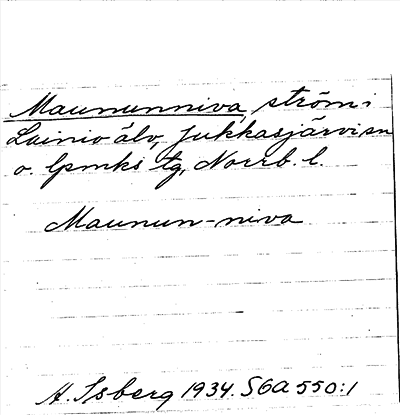 Maununniva, ström i
Lainio älv, Jukkasjärvi sn
o. lpmks tg, Norrb. l.
Maunun-niva
A. Isberg 1934. SGA 550:1